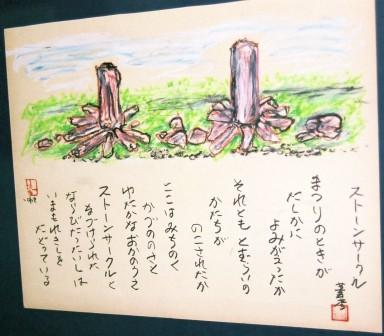 ストーンサークル
まつりのときが
たしかに
よみがえったか
それとも とむらいの
かたちが
のこされたか
ここはみちのく
かづののさと
ゆたかなおかのうえ
ストーンサークルと
なづけられた
ならびたったいしは
いまもれきしを
たどっている